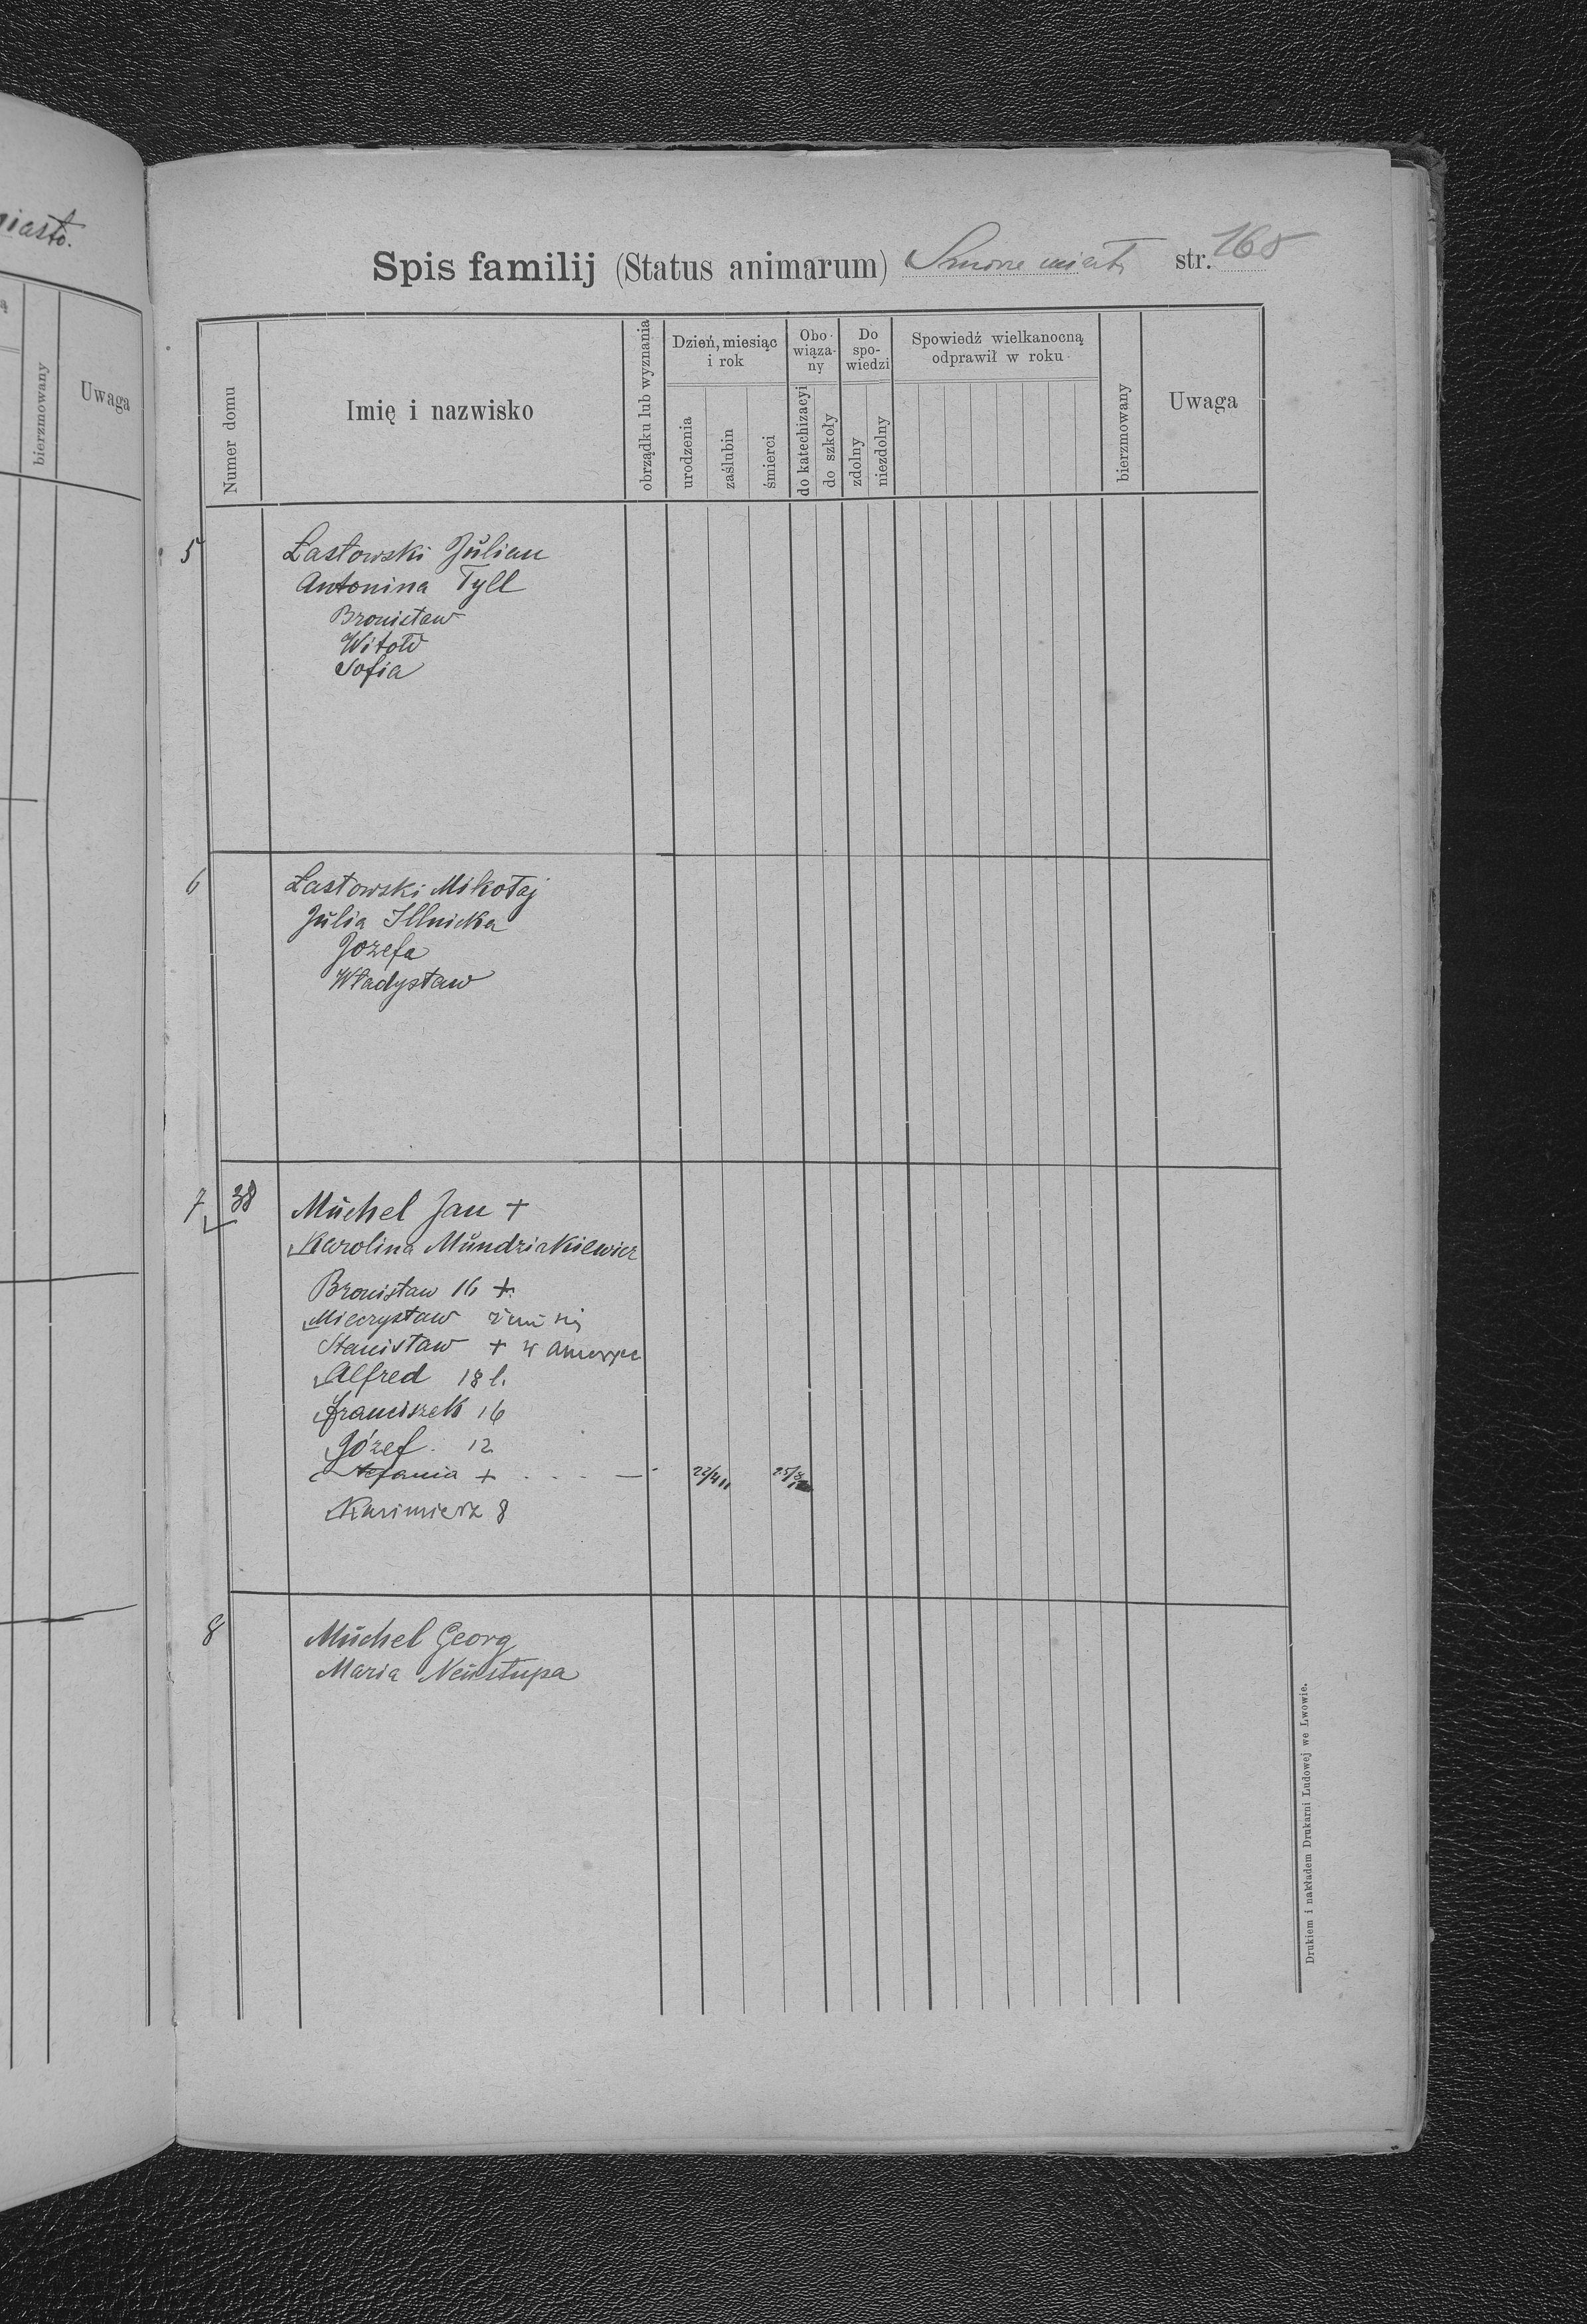 iasto.
bierzmowany
Uwaga
Spis familij (Status animarum) Smorze miasto str. 165
Numer domu
Imię i nazwisko
obrządku lub wyznania
Dzień, miesiąc i rok
urodzenia
zaślubin
śmierci
Obowiązany
do katechizacyi
do szkoły
Do spowiedzi
zdolny
niezdolny
Spowiedź wielkanocną odprawił w roku
bierzmowany
Uwaga
5 Łastowski Julian
Antonina Tyll
Bronisław
Witold
Sofia
6 Łastowski Mikołaj
Julia Illnicka
Jozefa
Władysław
7 38 Muchel Jan +
Karolina Mundziakiewicz
Bronisław 16 +
Mieczysław
Stanisław + w
Alfred 18 l.
Franciszek 16
Józef 12
Stefania + 22/4 11 25/8
Kazimierz 8
8 Muchel Georg
Maria Neustupa
Drukiem i nakładem Drukarni Ludowej we Lwowie.